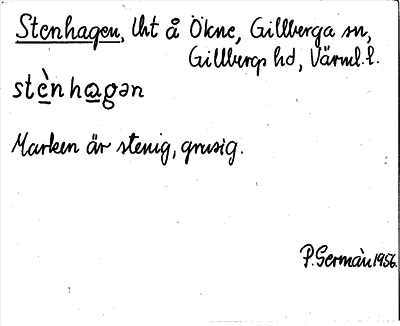 Stenhagen, lht å Ökne, Gillberga sn,
Gillbergs hd, Värml. l.
stènhagən
Marken är stenig, grusig.
P. Germàn 1956.